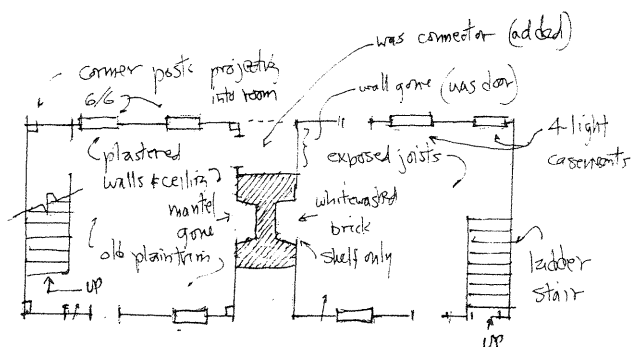 was connector (added)
corner posts projecting
into room
6/6
wall gone (was door)
4-light
casements
plastered
walls & ceiling
exposed joists
mantel
gone
whitewashed
brick
old plain trim
shelf only
ladder
stair
UP
UP